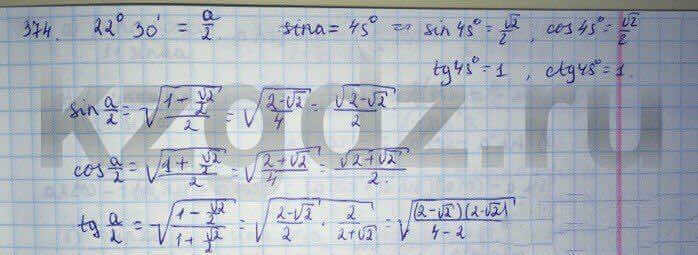 374. 22° 30' = a/2 sina = 45° = sin 45° = √2/2, cos 45° = √2/2
tg 45° = 1, ctg 45° = 1.
sin a/2 = √((1 - √2/2)/2) = √((2-√2)/4) = √(2-√2)/2
cos a/2 = √((1 + √2/2)/2) = √((2+√2)/4) = √(2+√2)/2.
tg a/2 = √((1 - √2/2)/(1 + √2/2)) = √((2-√2)/2 · 2/(2+√2)) = √((2-√2)(2-√2)/(4-2))
kzgdz.ru